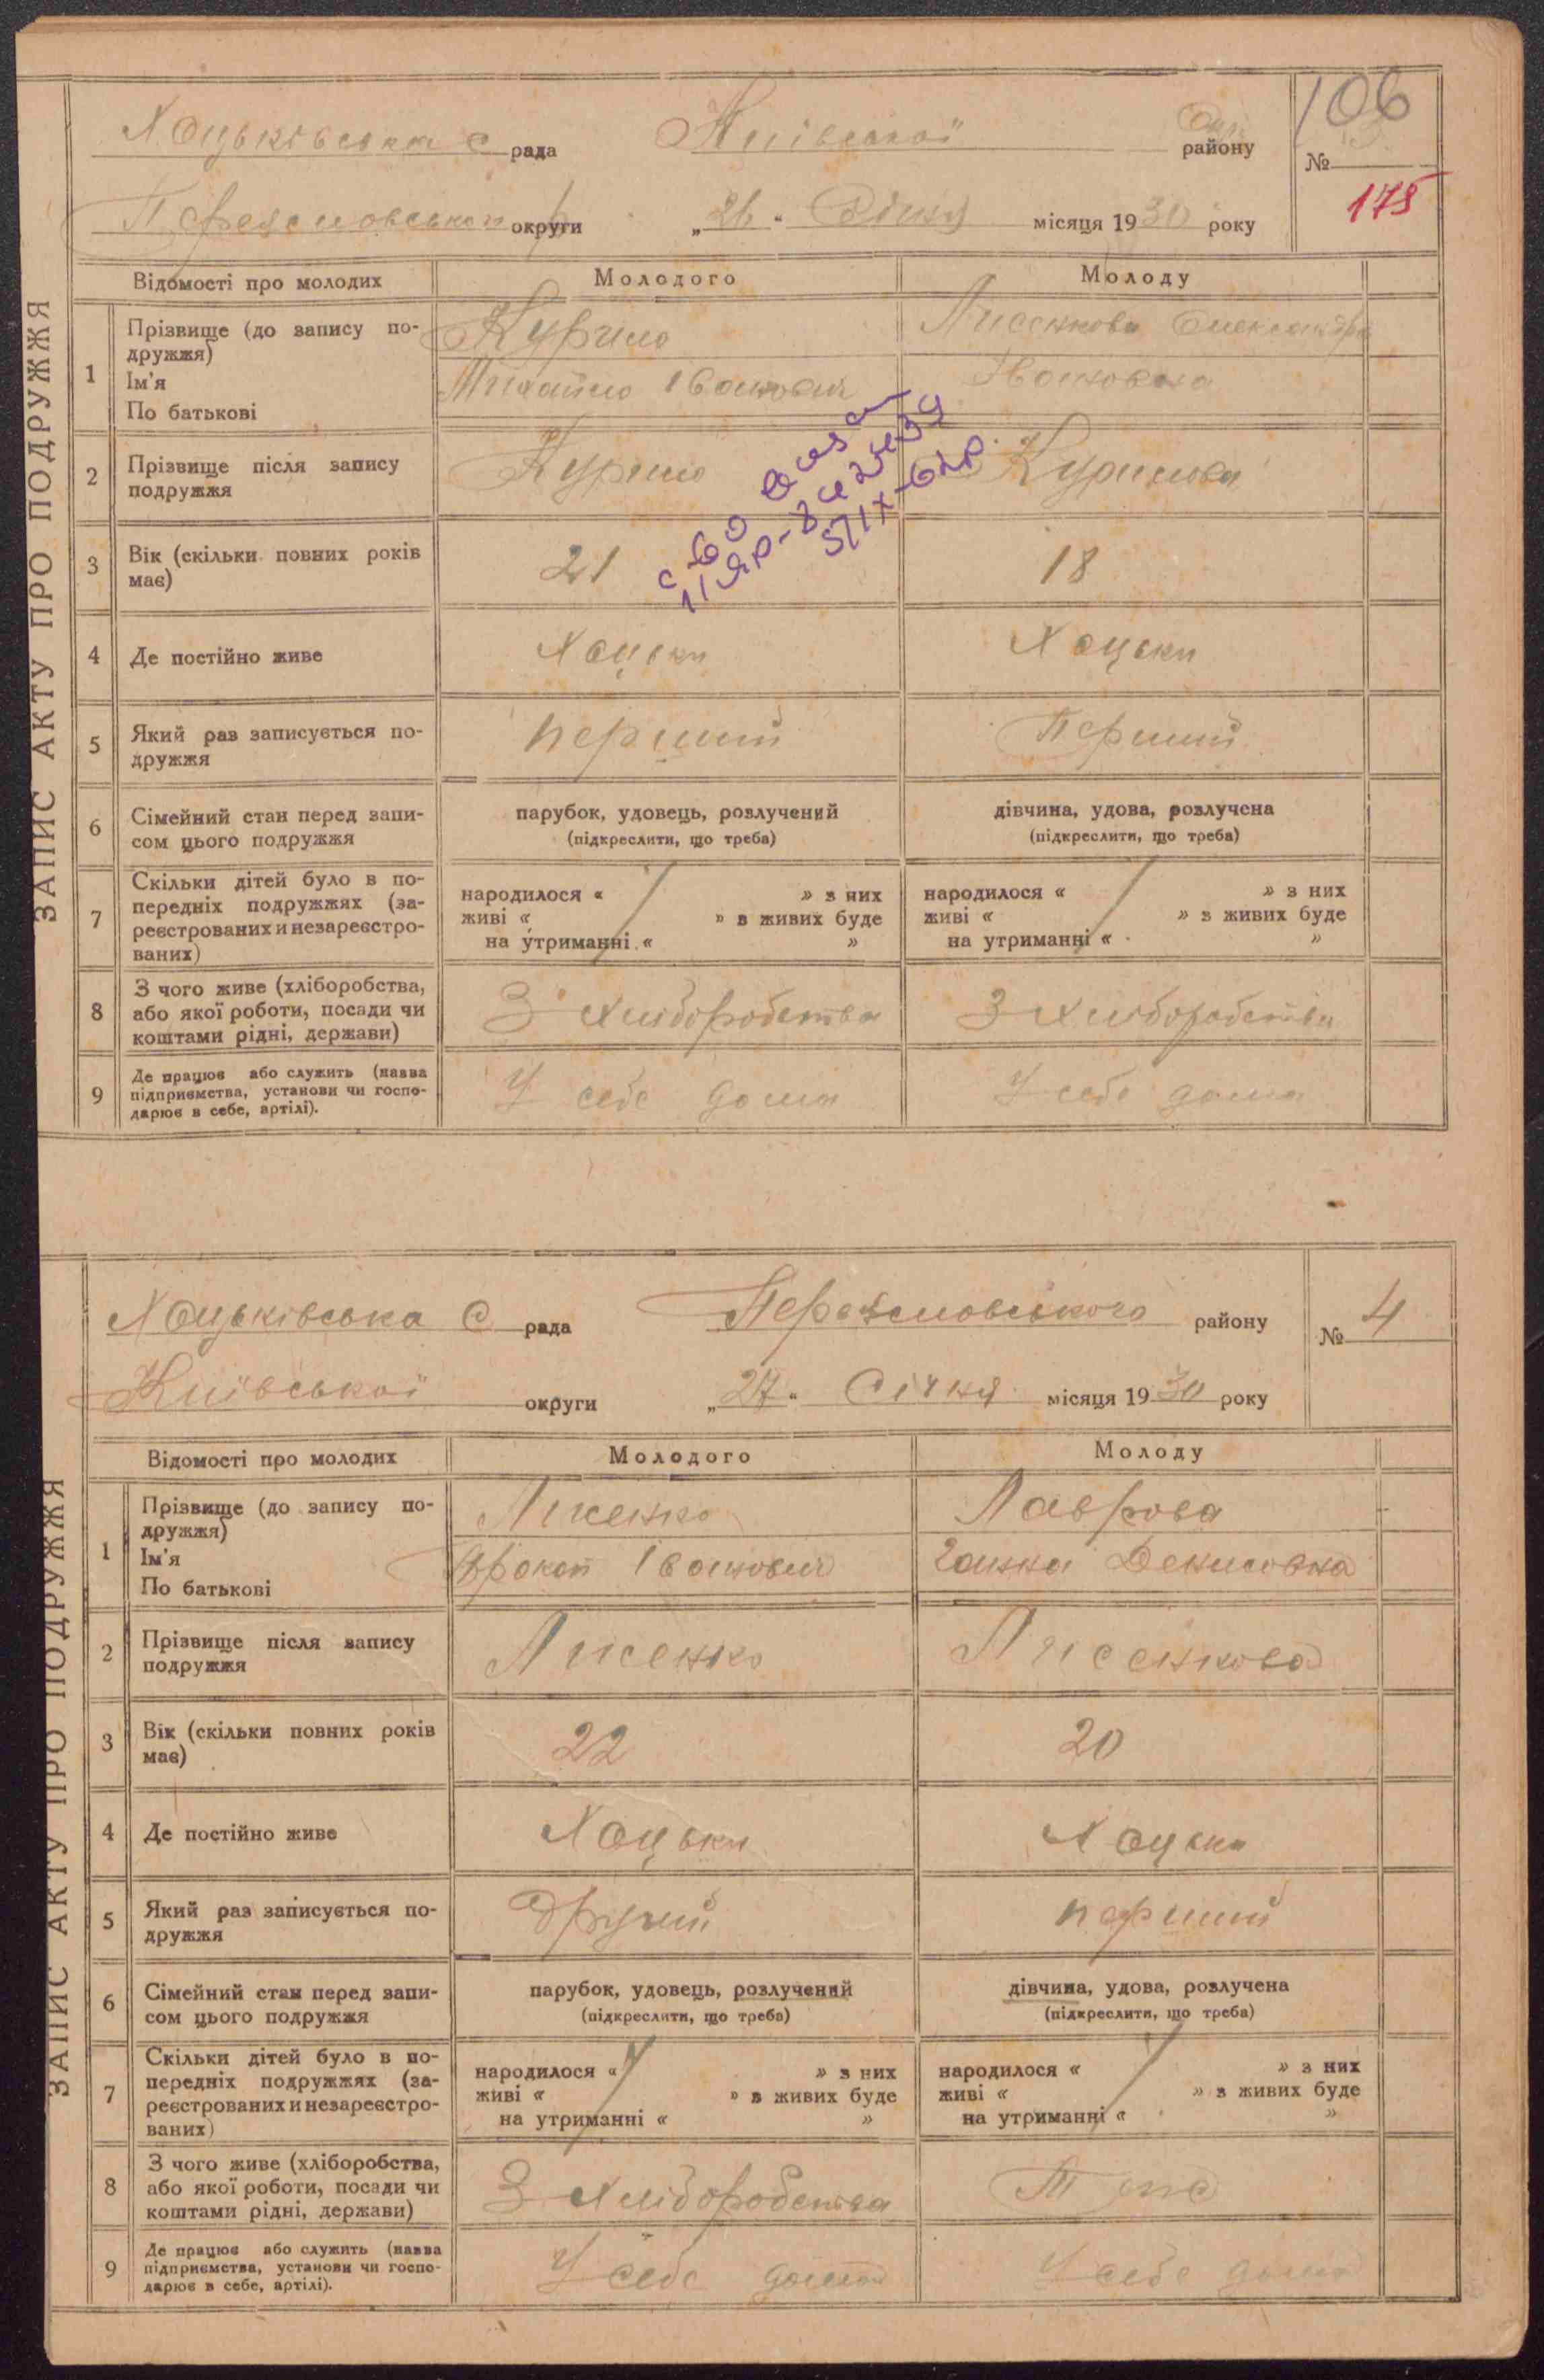 106
Хоцьківська с рада Київської Окр. району
№ 3
175
Переясловського р округи „26" Січня місяця 1930 року
ЗАПИС АКТУ ПРО ПОДРУЖЖЯ
Відомості про молодих Молодого Молоду
1 Прізвище (до запису подружжя) Курило Лисенкова Олександра
Ім'я Михайло Іванович Івановна
По батькові
2 Прізвище після запису подружжя Курило Курилова
3 Вік (скільки повних років має) 21 18
4 Де постійно живе Хоцьки Хоцьки
5 Який раз записується подружжя перший Перший
6 Сімейний стан перед записом цього подружжя парубок, удовець, розлучений дівчина, удова, розлучена
(підкреслити, що треба) (підкреслити, що треба)
7 Скільки дітей було в попередніх подружжях (зареєстрованих и незареєстрованих) народилося « » з них народилося « » з них
живі « » в живих буде живі « » з живих буде
на утриманні « » на утриманні « »
8 З чого живе (хліборобства, або якої роботи, посади чи коштами рідні, держави) З хліборобства З хліборобства
9 Де працює або служить (назва підприємства, установи чи господарює в себе, артілі). У себе дома У себе дома
Хоцьківська С рада Переясловського району № 4
Київської округи „27" Січня місяця 1930 року
ЗАПИС АКТУ ПРО ПОДРУЖЖЯ
Відомості про молодих Молодого Молоду
1 Прізвище (до запису подружжя) Лисенко Лаврова
Ім'я Прокоп Іванович Ганна Денисовна
По батькові
2 Прізвище після запису подружжя Лисенко Лисенкова
3 Вік (скільки повних років має) 22 20
4 Де постійно живе Хоцьки Хоцьки
5 Який раз записується подружжя Другий перший
6 Сімейний стан перед записом цього подружжя парубок, удовець, розлучений дівчина, удова, розлучена
(підкреслити, що треба) (підкреслити, що треба)
7 Скільки дітей було в попередніх подружжях (зареєстрованих и незареєстрованих) народилося « » з них народилося « » з них
живі « » в живих буде живі « » з живих буде
на утриманні « » на утриманні « »
8 З чого живе (хліборобства, або якої роботи, посади чи коштами рідні, держави) З хліборобства
9 Де працює або служить (назва підприємства, установи чи господарює в себе, артілі). У себе дома У себе дома